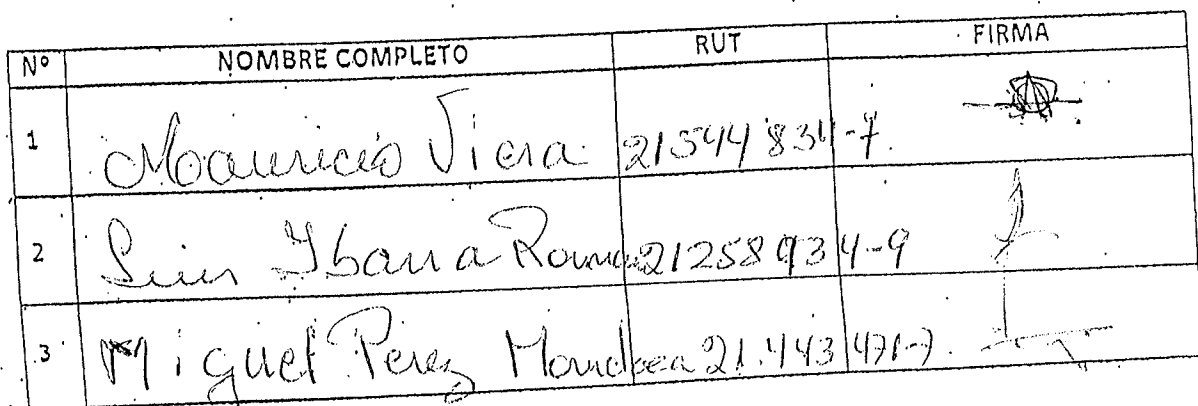 Nº NOMBRE COMPLETO RUT FIRMA
1 Mauricio Viera 21544834-7
2 Luis Ibarra 21258934-9
3 Miguel Perez 21.443471-7